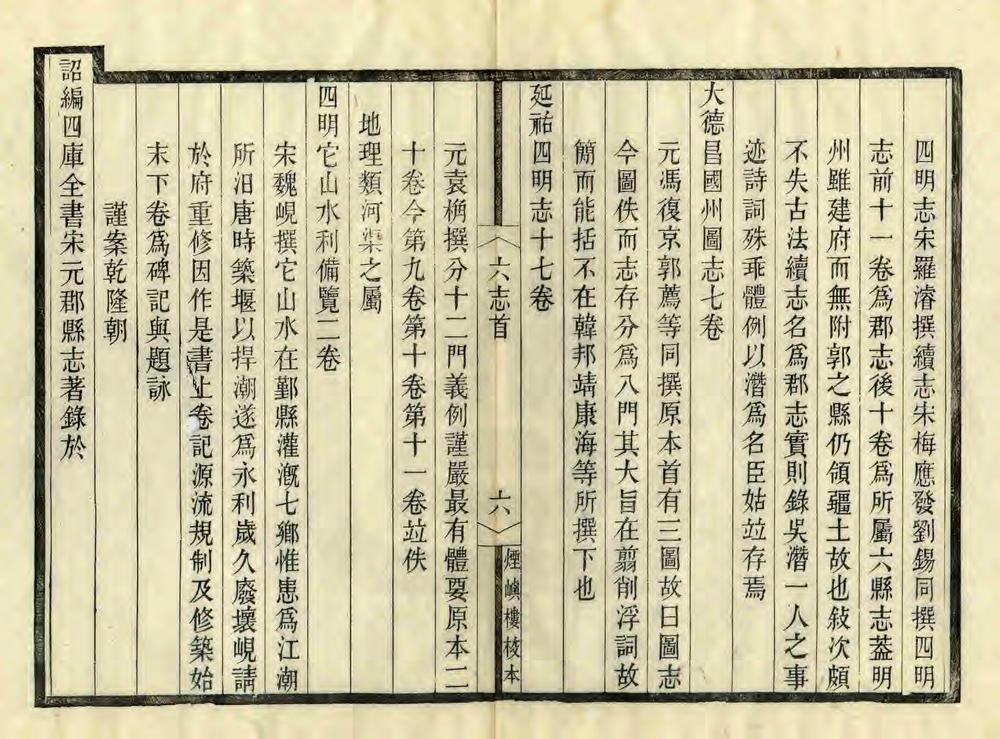 四明志宋羅濬撰續志宋梅應發劉錫同撰四明
志前十一卷爲郡志後十卷爲所屬六縣志葢明
州雖建府而無附郭之縣仍領疆土故也敍次頗
不失古法續志名爲郡志實則錄吳潛一人之事
迹詩詞殊乖體例以潛爲名臣姑竝存焉
大德昌國州圖志七卷
元馮復京郭薦等同撰原本首有三圖故曰圖志
今圖佚而志存分爲八門其大旨在翦削浮詞故
簡而能括不在韓邦靖康海等所撰下也
延祐四明志十七卷
六志首
六
煙嶼樓校本
元袁桷撰分十二門義例謹嚴最有體要原本二
十卷今第九卷第十卷第十一卷竝佚
地理類河渠之屬
四明它山水利備覽二卷
宋魏峴撰它山水在鄞縣灌漑七鄉惟患爲江潮
所汨唐時築堰以捍潮遂爲永利歲久廢壞峴請
於府重修因作是書上卷記源流規制及修築始
末下卷爲碑記與題詠
謹案乾隆朝
詔編四庫全書宋元郡縣志著錄於